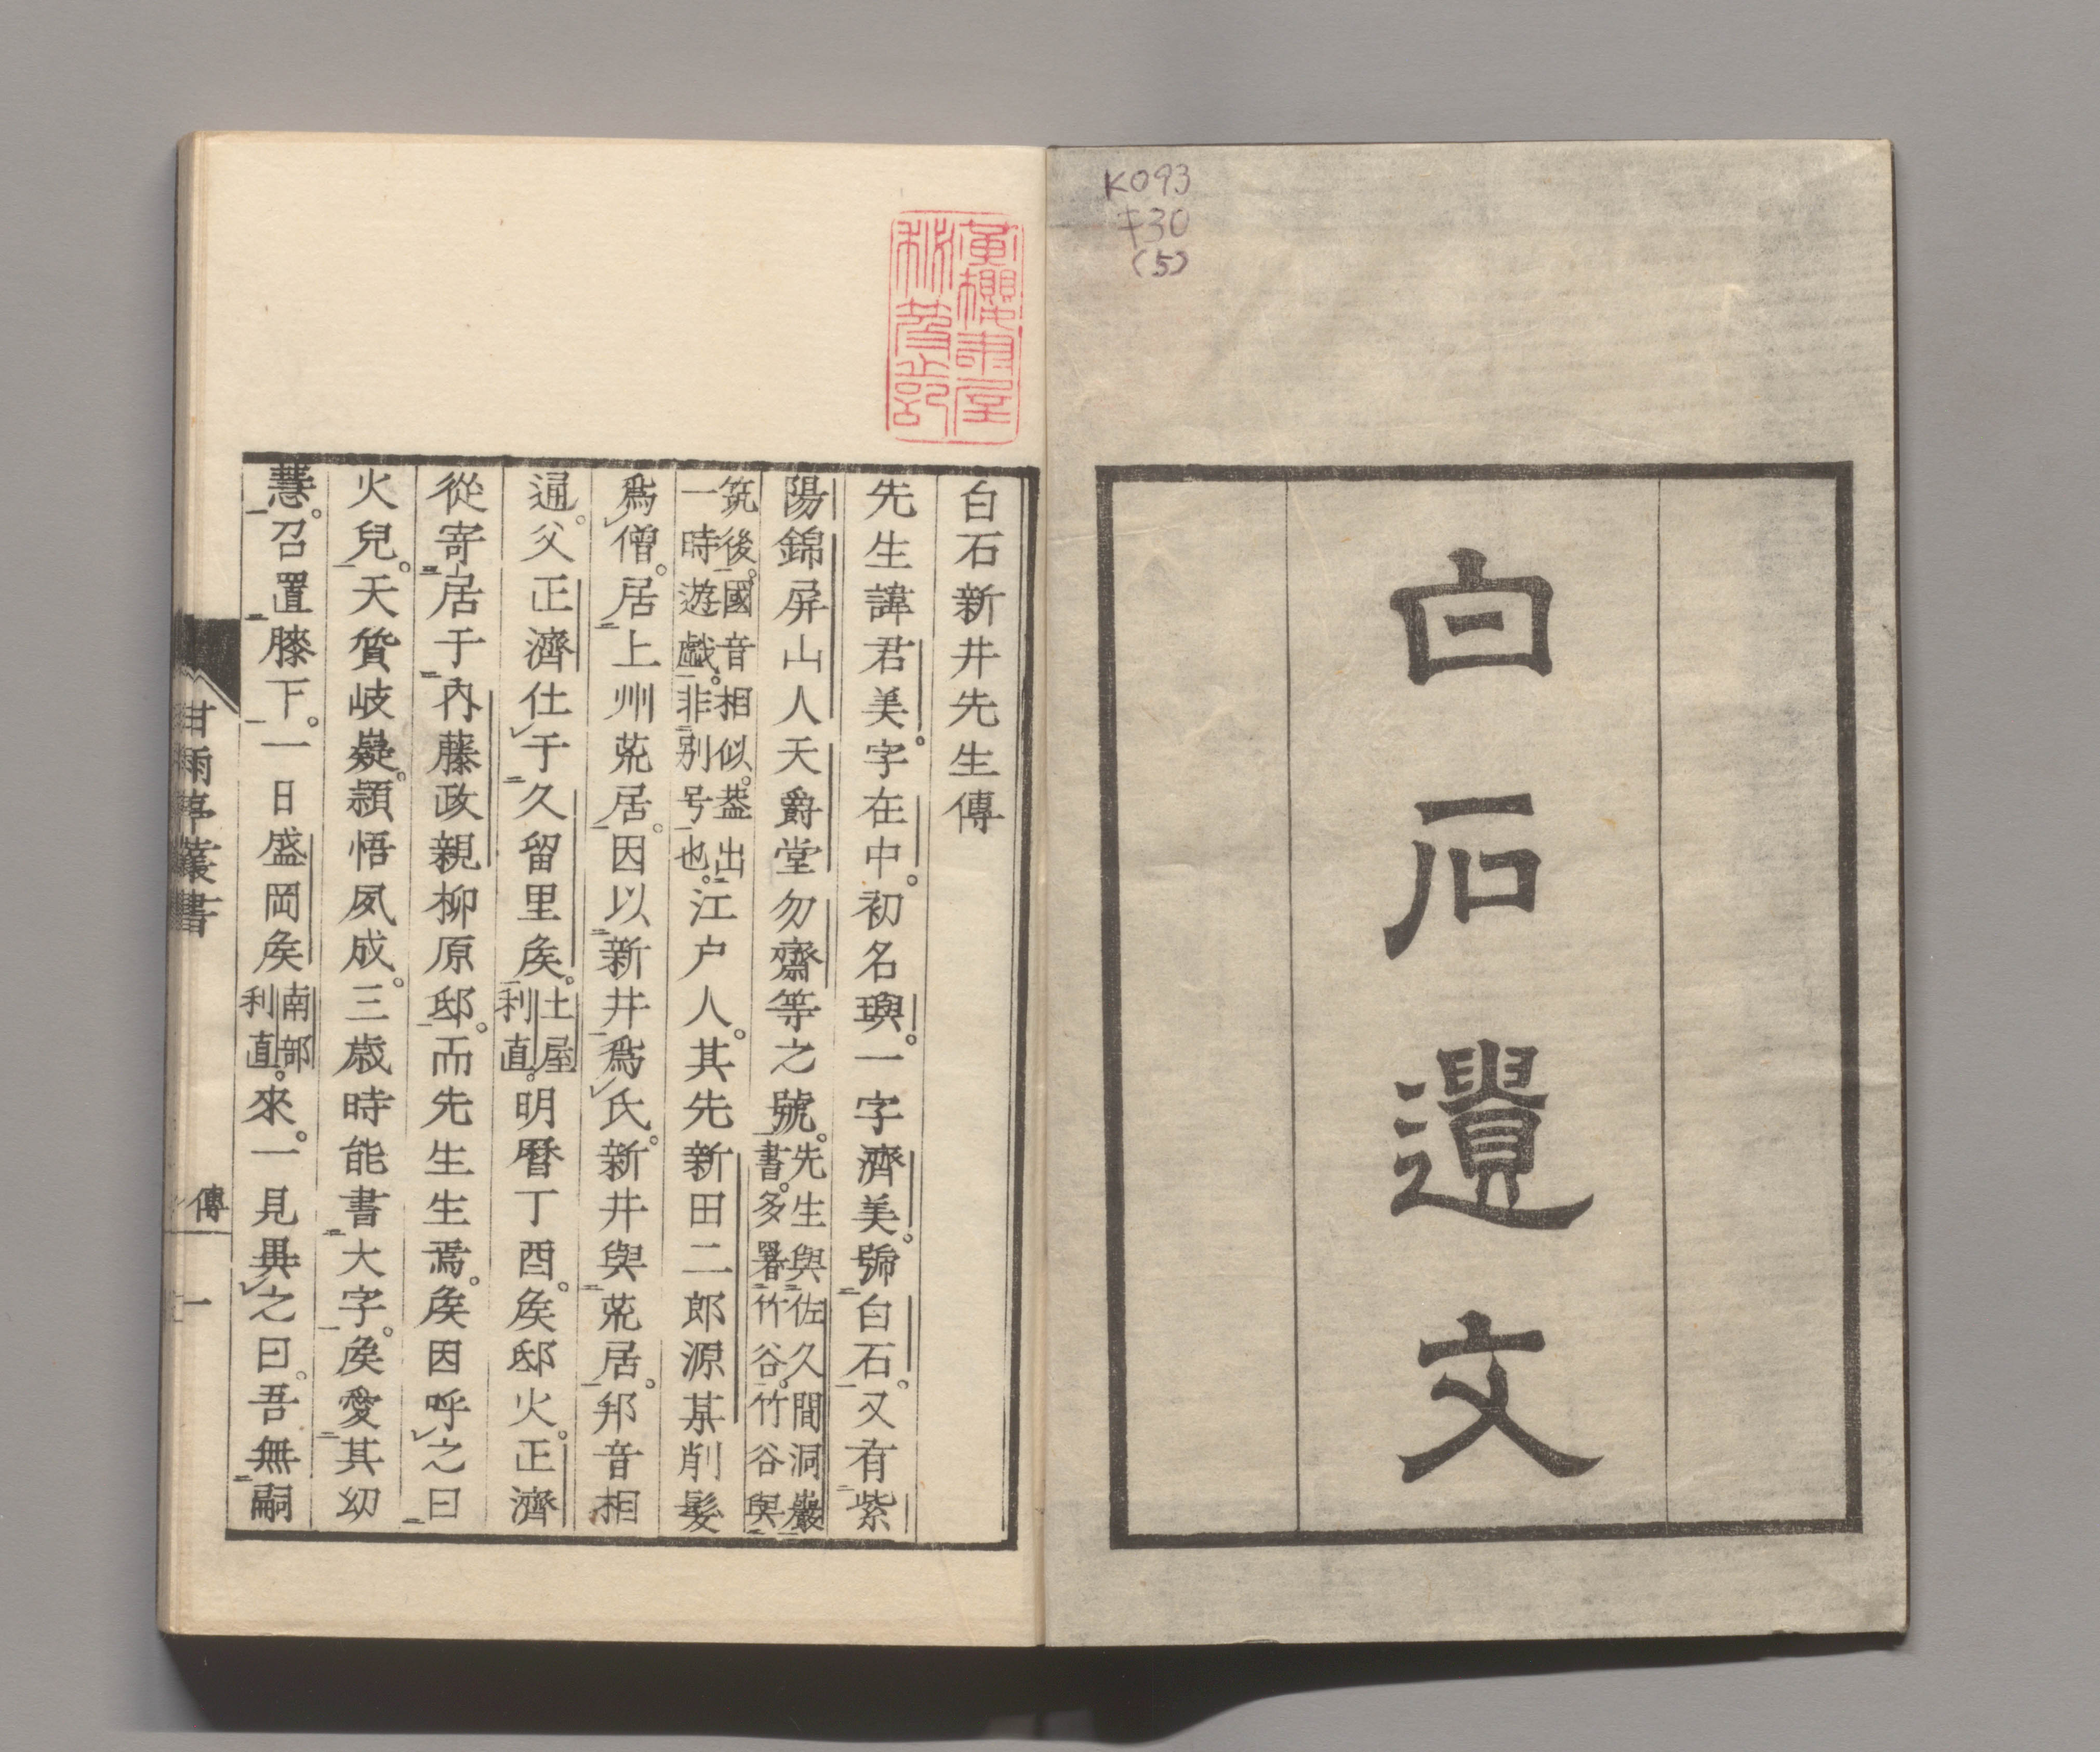 K093
キ30
(5)
白石遺文
白石新井先生傳
先生諱君美。字在中。初名璵。一字濟美。號白石。又有紫
陽錦屏山人天爵堂勿齋等之號。先生與佐久間洞巖書。多署竹谷。竹谷與
筑後。國音相似。葢出一時遊戲。非別号也。江戸人。其先新田二郎源某削髮
爲僧。居上州荒居。因以新井爲氏。新井與荒居。邦音相
通。父正濟仕于久留里矦。土屋利直。明曆丁酉。矦邸火。正濟
從寄居于內藤政親柳原邸。而先生生焉。矦因呼之曰
火兒。天質岐嶷。頴悟夙成。三歲時能書大字。矦愛其幼
慧。召置膝下。一日盛岡矦南部利直。來。一見異之曰。吾無嗣
甘雨亭叢書
傳
一